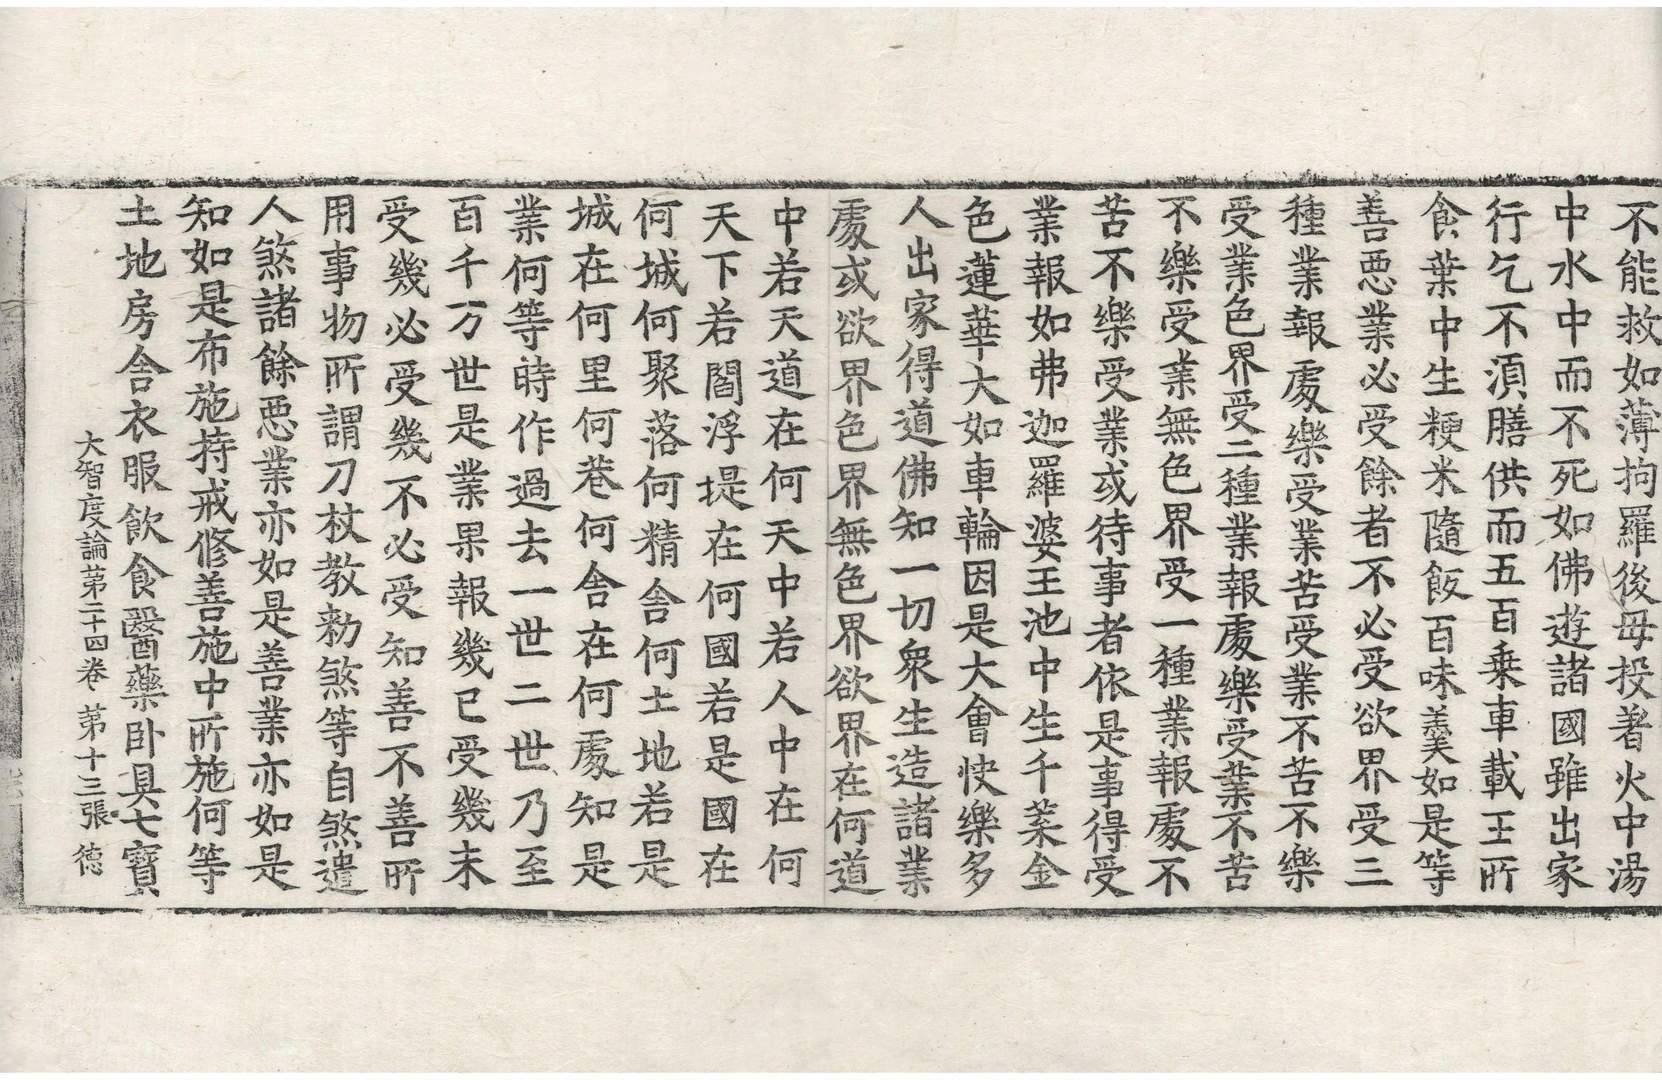 不能救如薄拘羅後母投著火中湯
中水中而不死如佛遊諸國雖出家
行乞不湏膳供而五百乗車載王所
食葉中生粳米隨飯百味羹如是等
善惡業必受餘者不必受欲界受三
種業報處樂受業苦受業不苦不樂
受業色界受二種業報處樂受業不苦
不樂受業無色界受一種業報處不
苦不樂受業或待事者依是事得受
業報如弗迦羅婆王池中生千葉金
色蓮華大如車輪因是大會快樂多
人出家得道佛知一切衆生造諸業
處或欲界色界無色界欲界在何道
中若天道在何天中若人中在何
天下若閻浮提在何國若是國在
何城何聚落何精舍何土地若是
城在何里何巷何舍在何處知是
業何等時作過去一世二世乃至
百千万世是業果報幾已受幾未
受幾必受幾不必受知善不善所
用事物所謂刀杖教勑煞等自煞遣
人煞諸餘惡業亦如是善業亦如是
知如是布施持戒修善施中所施何等
土地房舍衣服飲食醫藥卧具七寶
大智度論第二十四卷 第十三張 德